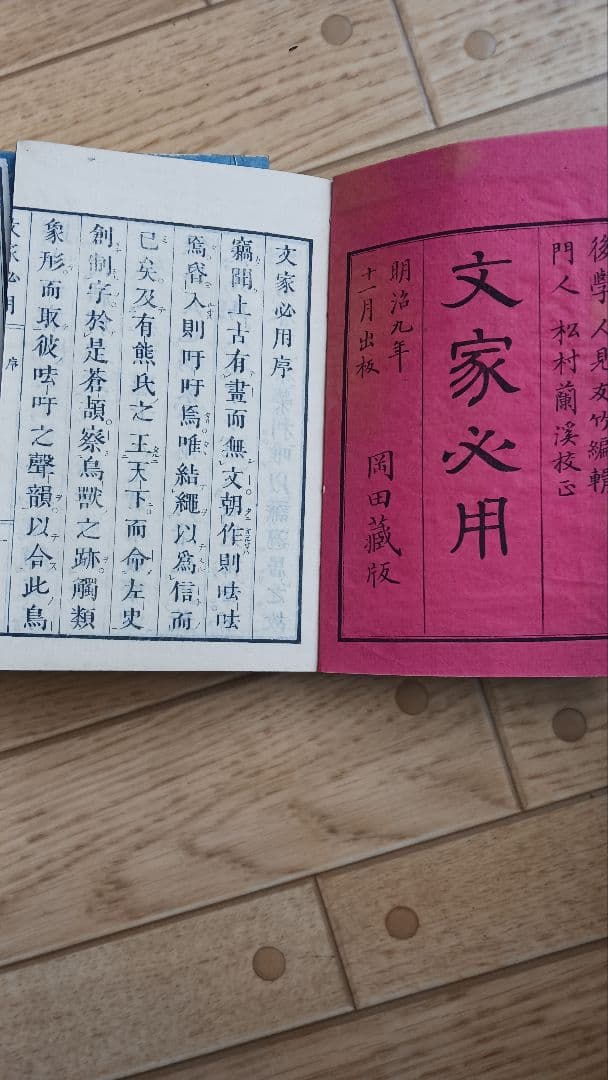 後學 人見友竹編輯
門人 松村蘭溪校正
文家必用
明治九年
十一月出板
岡田藏版
文家必用序
竊聞上古有畫而無文朝作則呿呿
焉昏入則吁吁焉唯結繩以爲信而
已矣及有熊氏之王天下而命左史
創制字於是蒼頡察鳥獸之跡觸類
象形而取彼呿吁之聲韻以合此鳥
文家必用 序